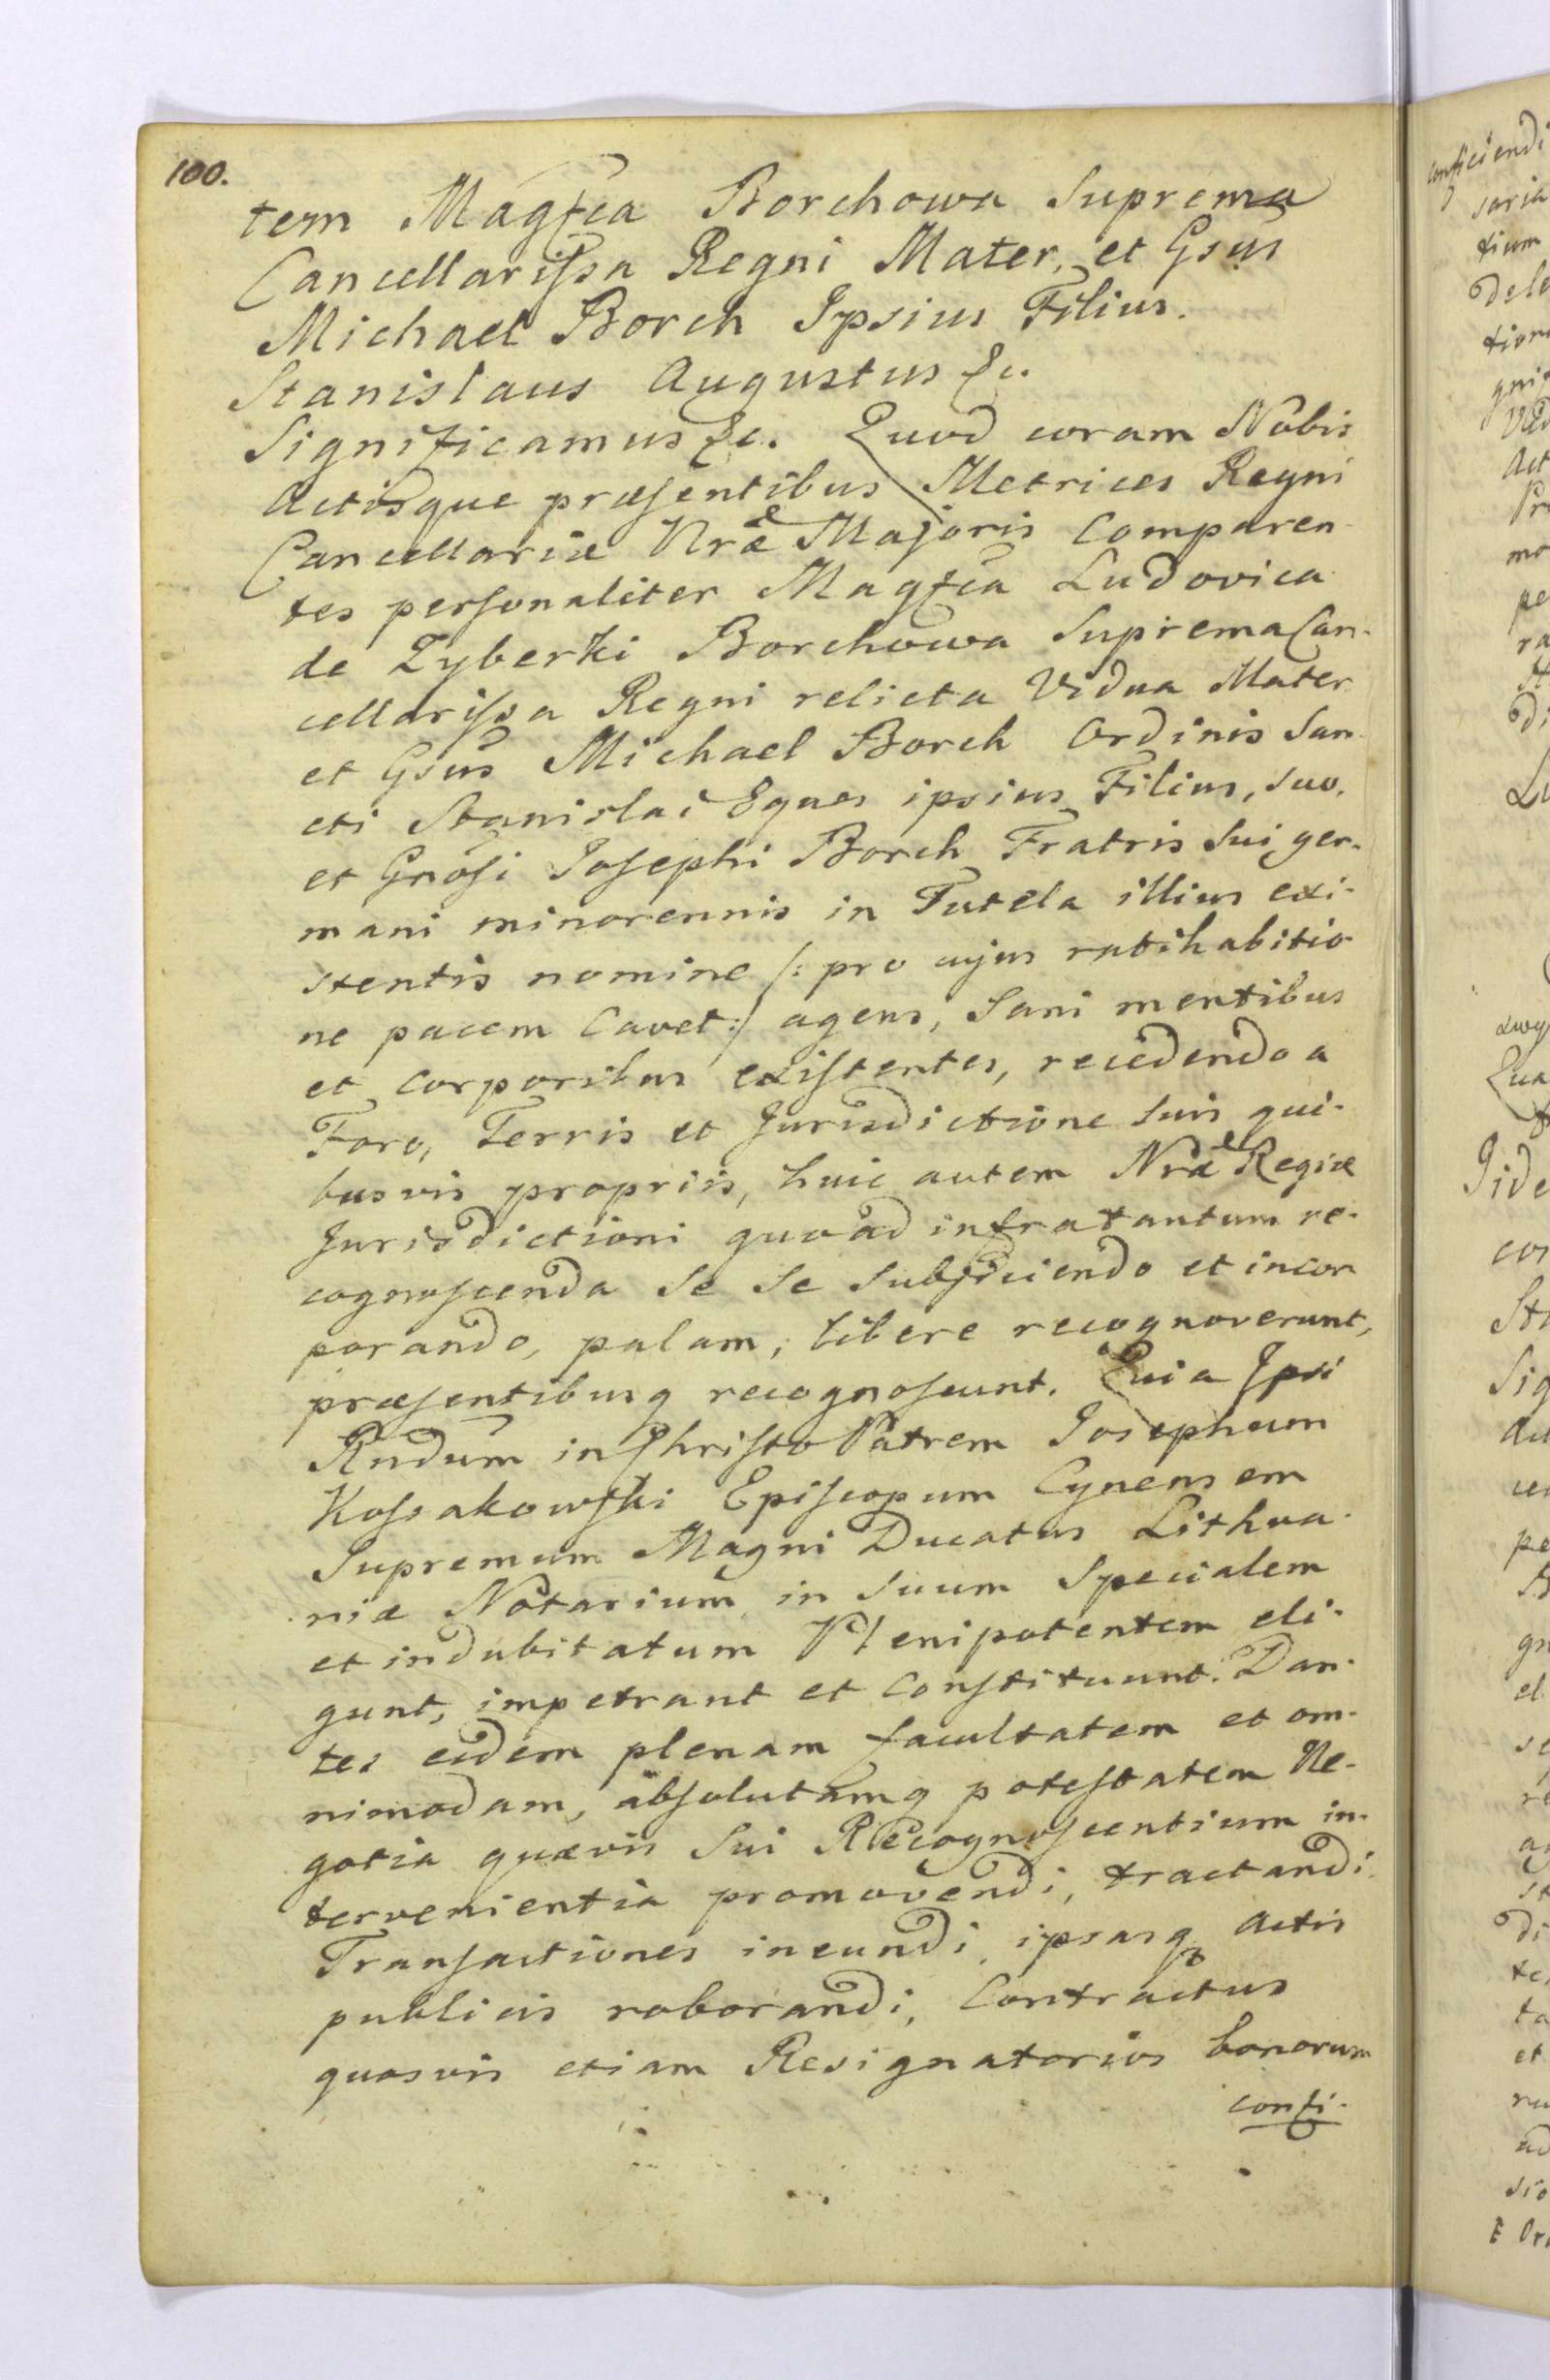 100.
tem Magfca Borchowa Suprema
Cancellarissa Regni Mater, et Gsus
Michael Borch Ipsius Filius.
Stanislaus Augustus &c.
Significamus &c. Quod coram Nobis
Actisque præsentibus Metrices Regni
Cancellariæ Nræ Majoris Comparen
tes personaliter Magfca Ludovica
de Zyberki Borchowa Suprema Can-
cellarissa Regni relicta Vidua Mater
et Gsus Michael Borch Ordinis San
cti Stanislai Eques ipsius Filius, suo,
et Gnosi Josephi Borch Fratris Sui ger-
mani minorennis in Tutela illius exi-
stentis nomine /: pro cujus ratihabitio
ne pacem Cavet :/ agens, Sani mentibus
et Corporibus existentes, recedendo a
Foro, Terris et Jurisdictione Suis qui-
busvis propriis, huic autem Nræ Regiæ
Jurisdictioni quoad infra tantum re-
cognoscenda Se Se Subjiciendo et incor
porando, palam, libere recognoverunt,
præsentibusq recognoscunt. Quia Ipsi
Rndum in Christo Patrem Josephum
Kossakowski Episcopum Cynensem
Supremum Magni Ducatus Lithua-
niæ Notarium in Suum Specialem
et indubitatum Plenipotentem eli-
gunt, impetrant et Constituunt. Dan-
tes eidem plenam facultatem et om-
nimodam, absolutamq potestatem Ne-
gotia quævis Sui Recognoscentium in-
tervenientia promovendi, tractandi
Transactiones ineundi, ipsasq Actis
publicis roborandi, Contractus
quosvis etiam Resignatorios bonorum
confi-